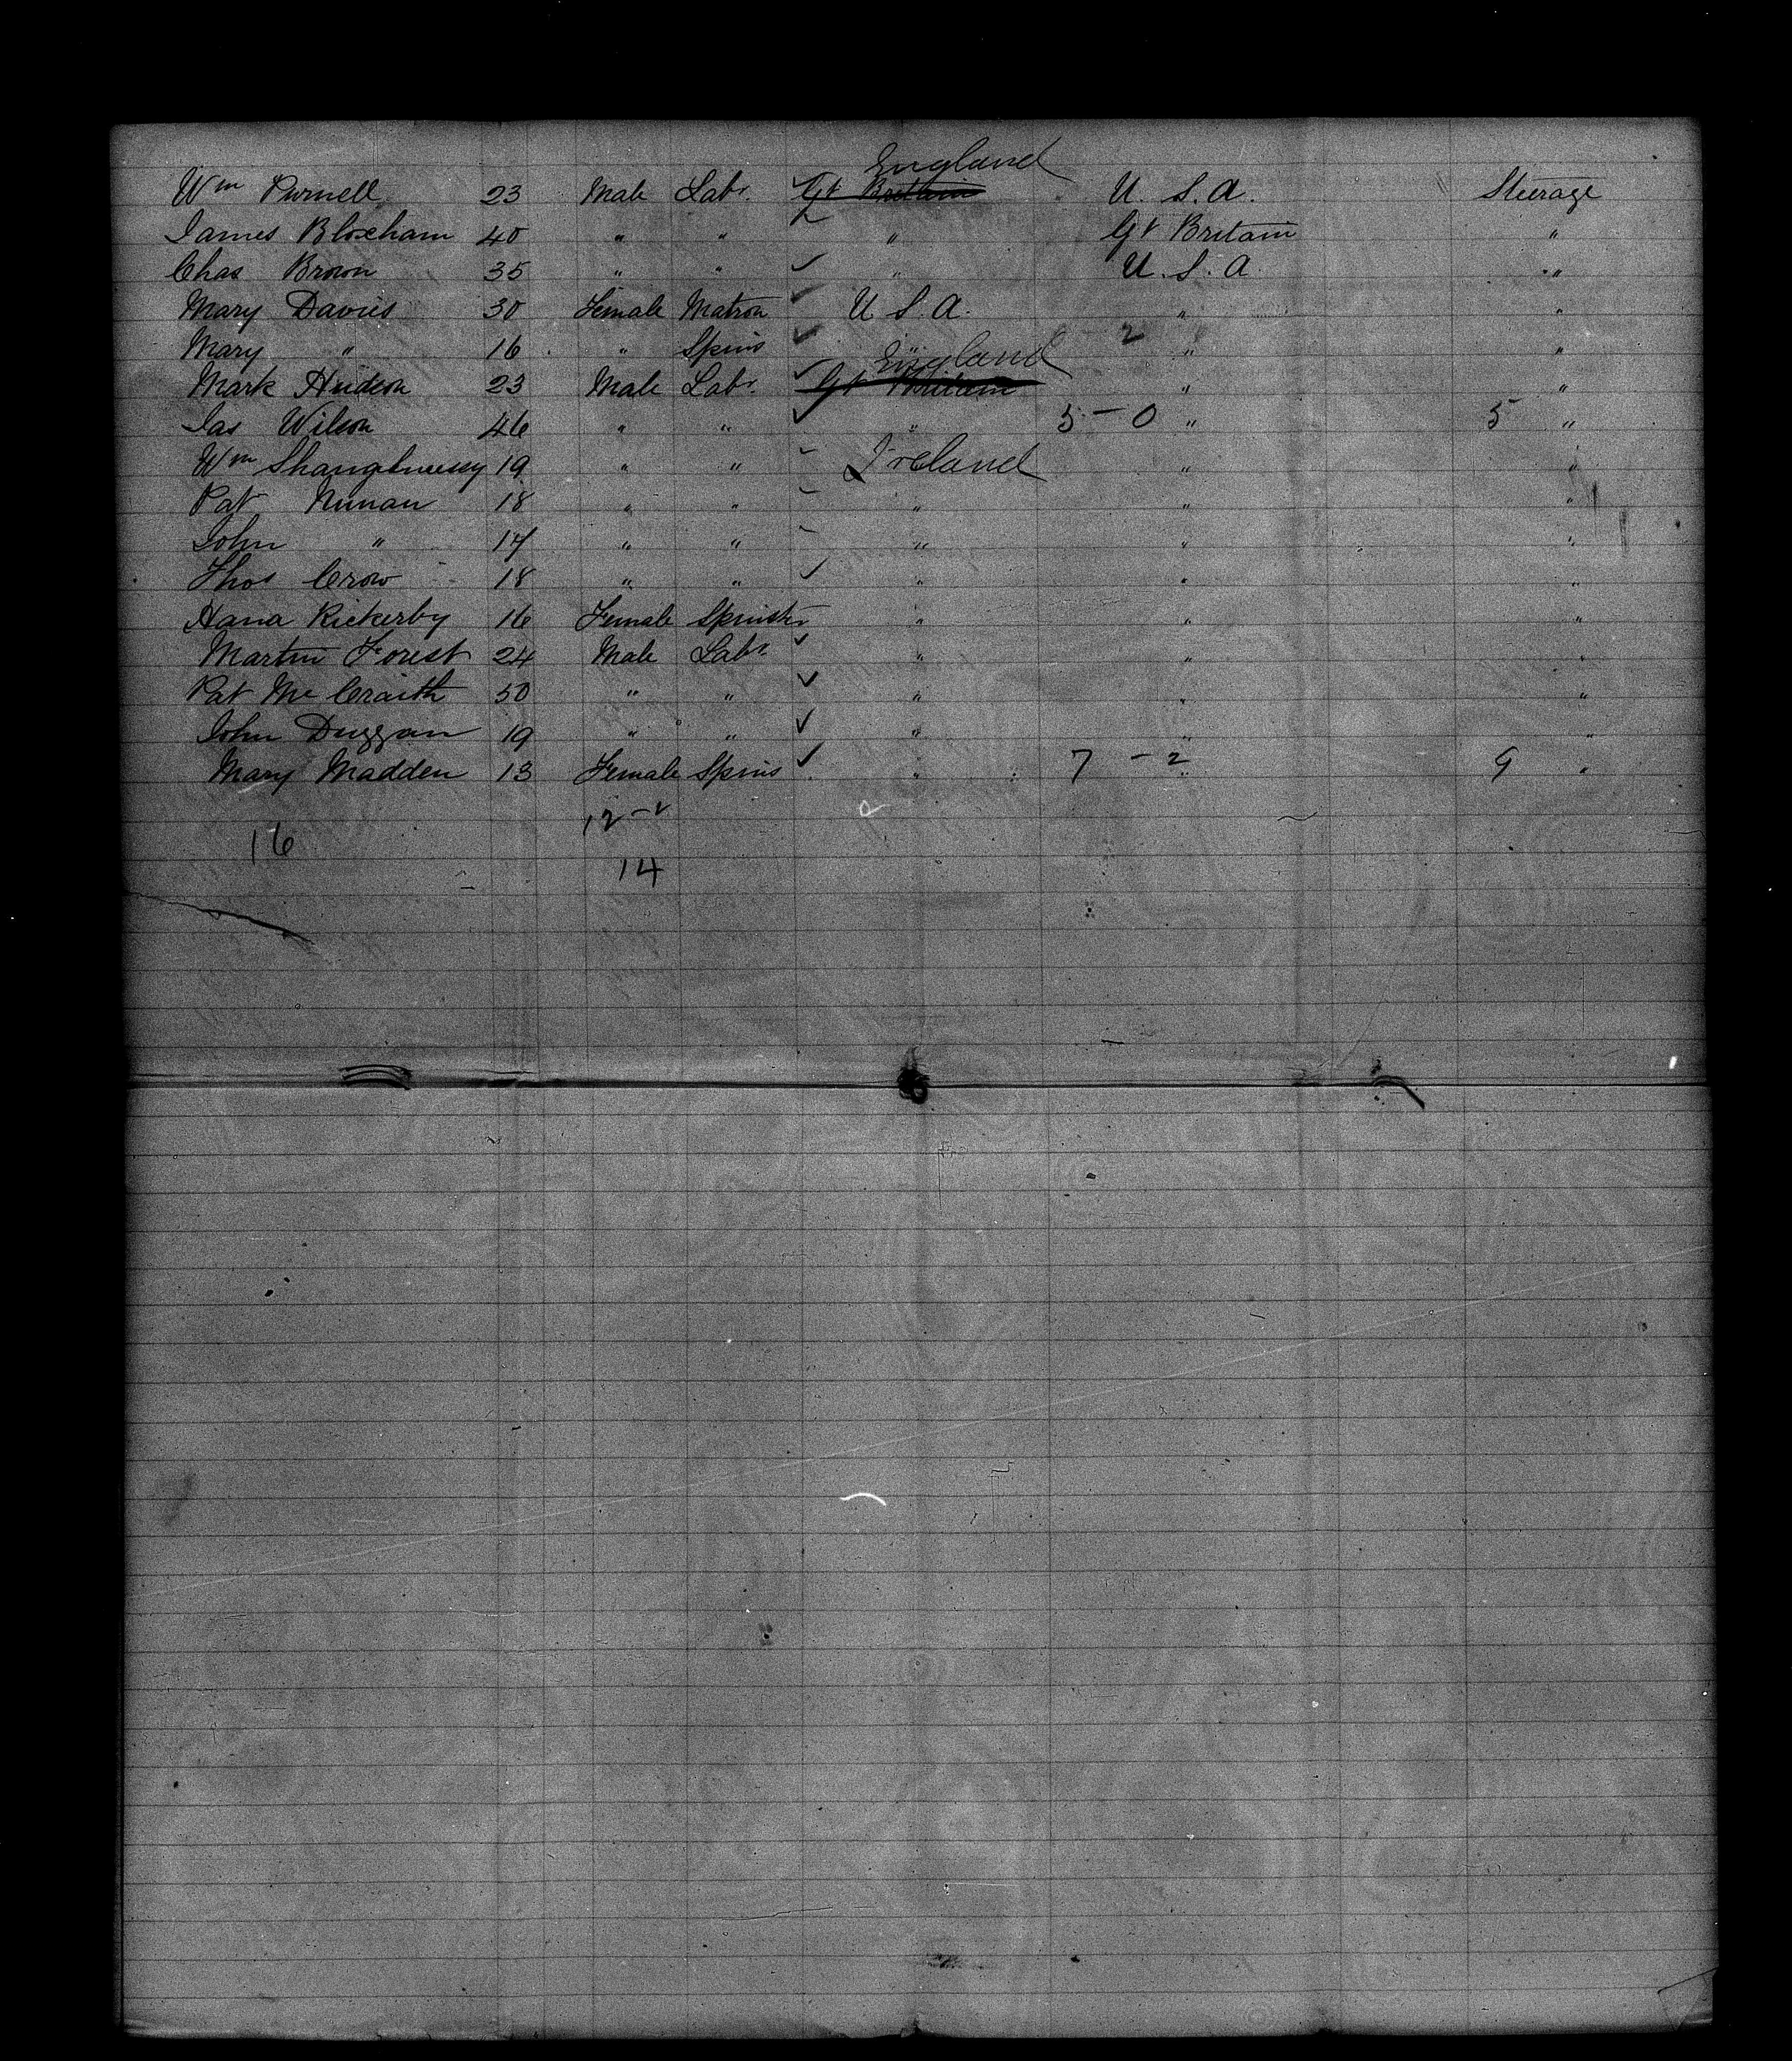 England
Wm Purnell 23 Male Labr. Gt Britain U. S. A. Steerage
James Bloxham 40 " " " Gt Britain "
Chas Brown 35 " " " U. S. A. "
Mary Davies 30 Female Matron U S. A. " "
Mary " 16 " Spins " 2 " "
England
Mark Hudson 23 Male Labr. Gt Britain " "
Jas Wilson 46 " " " 5 - 0 " 5 "
Wm Shaughnessy 19 " " Ireland " "
Pat Nunan 18 " " " " "
John " 17 " " " " "
Thos Crow 18 " " " " "
Hana Rickerby 16 Female Spinstr " " "
Martin Forest 24 Male Labr " " "
Pat Mc Craith 50 " " " " "
John Duggan 19 " " " " "
Mary Madden 13 Female Spins " 7 - 2 " 9 "
12-2
16
14